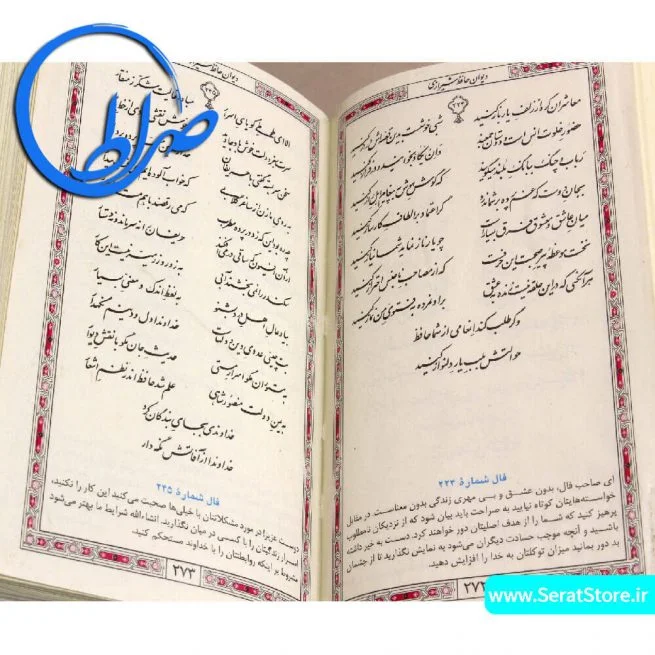 دیوان حافظ شیرازی
۲۴۴
معاشران گره از زلف یار باز کنید شبی خوشست بدین قصه‌اش دراز کنید
حضور خلوت انس است و دوستان جمعند وان یکاد بخوانید و در فراز کنید
رباب و چنگ به بانگ بلند میگویند که گوش هوش به پیغام اهل راز کنید
بجان دوست که غم پرده بر شما ندرد گر اعتماد بر الطاف کارساز کنید
میان عاشق و معشوق فرق بسیار است چو یار ناز نماید شما نیاز کنید
نخست موعظهٔ پیر صحبت این حرفست که از مصاحب ناجنس احتراز کنید
هر آنکسی که در این حلقه نیست زنده بعشق بر او نمرده به فتوی من نماز کنید
وگر طلب کند انعامی از شما حافظ
حوالتش بلب یار دلنواز کنید
فال شماره ۲۴۴
ای صاحب فال، بدون عشق و بی مهری زندگی بدون معناست. در مقابل
خواسته‌هایتان کوتاه نیایید به صراحت باید بیان شود که از نزدیکان نامطلوب
پرهیز کنید که شما را از هدف اصلیتان دور خواهند کرد. دست به خیر داشته
باشید و آنچه موجب حسادت دیگران می‌شود به نمایش نگذارید تا از چشمان
بد دور بمانید میزان توکلتان به خدا را افزایش دهید.
۲۷۲
دیوان حافظ شیرازی
۲۴۵
الا ای طوطی گویای اسرار مبادا خالیت شکر ز منقار
سرت سبز و دلت خوش باد جاوید خوش نقشی نمودی از خط
سخن سربسته گفتی با حریفان پرده بردار
به روی ما زن از ساغر گلابی که خواب آلوده‌ایم
چه ره بود این که زد در پرده مطرب که می رقصند با هم مست
از آن افیون که ساقی در می افکند حریفان را نه سر ماند نه دستار
سکندر را نمی بخشند آبی به زور و زر میسر نیست این کار
بیا و حال اهل درد بشنو به لفظ اندک و معنی بسیار
بت چینی عدوی دین و دلهاست خداوندا دل و دینم نگهدار
به مستوران مگو اسرار مستی حدیث جان مگو با نقش دیوار
به یمن دولت منصور شاهی علم شد حافظ اندر نظم اشعار
خداوندی بجای بندگان کرد
خداوندا ز آفاتش نگه دار
فال شماره ۲۴۵
دوست عزیز! در مورد مشکلاتتان با خیلی‌ها صحبت می‌کنید این کار را نکنید،
اسرار زندگیتان را با کسی در میان نگذارید. انشاءالله شرایط ما بهتر می‌شود
مشروط بر اینکه روابطتان را با خداوند مستحکم کنید.
۲۷۳
صراط
www.SeratStore.ir